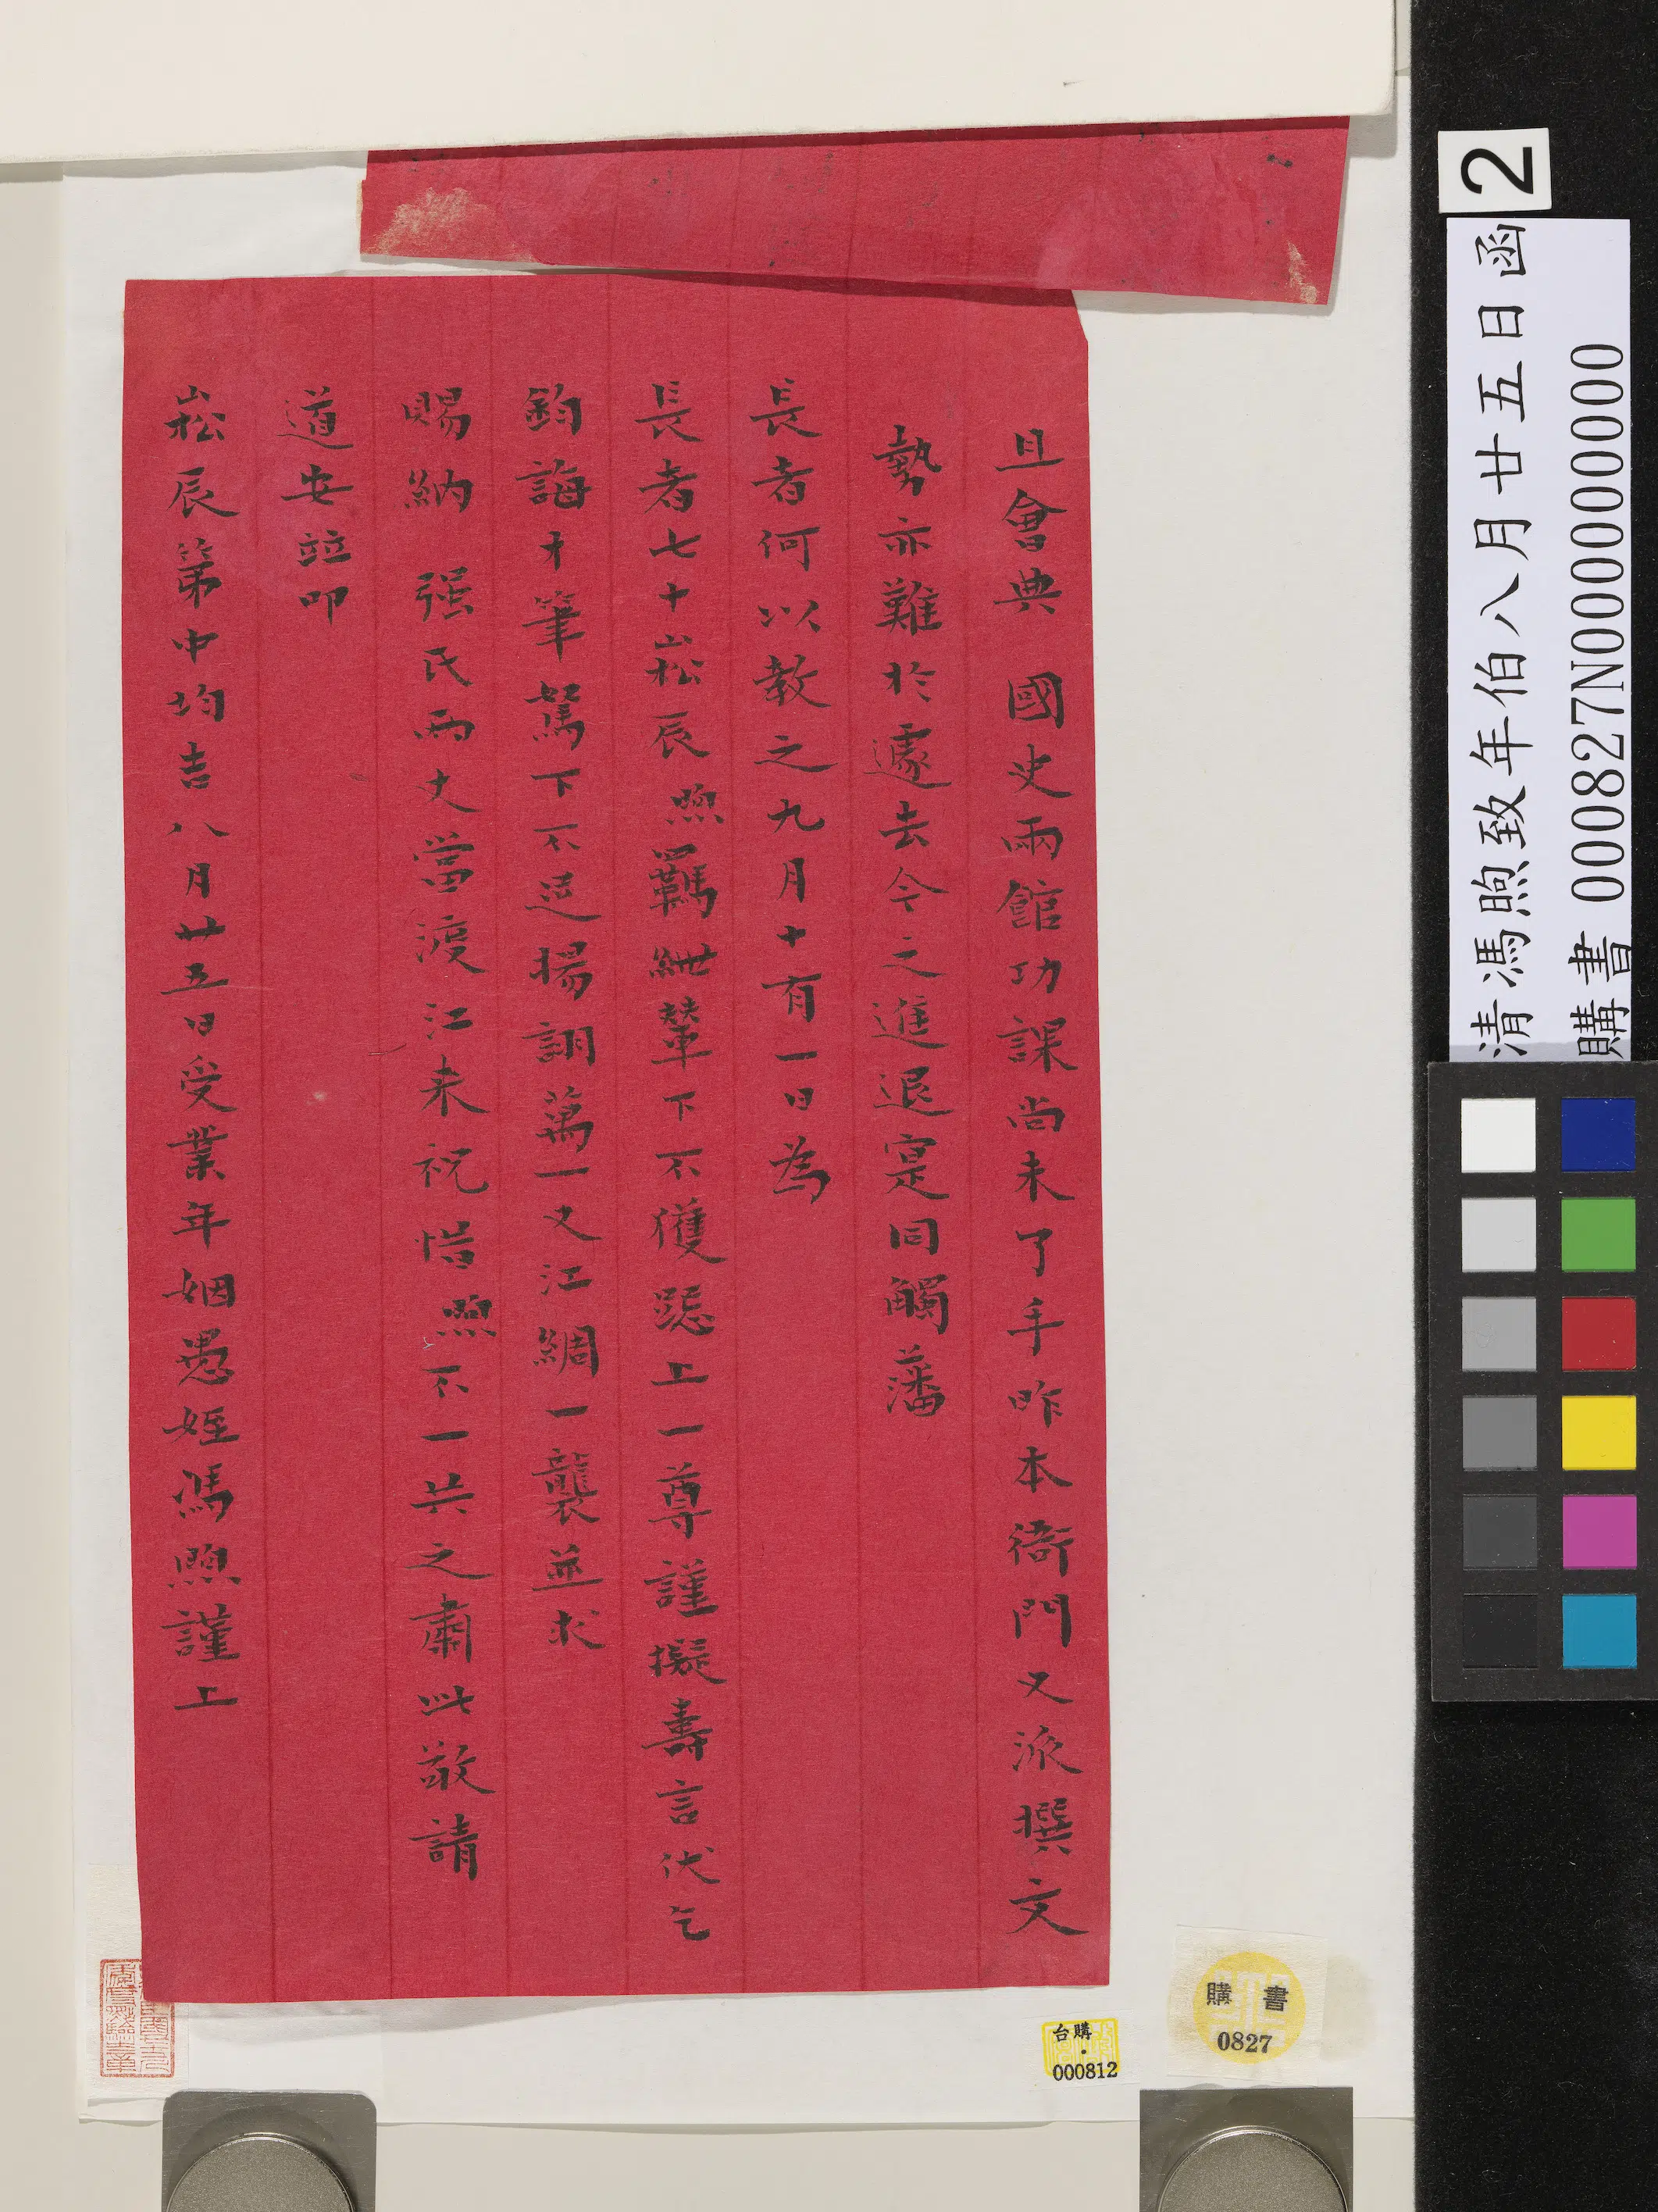 且會典　國史兩館功課尚未了手昨本衙門又派撰文
勢亦難於遽去今之進退寔同觸藩
長者何以教之九月十有一日為
長者七十崧辰煦羈紲輦下不獲跽上一尊謹擬壽言伏乞
鈞誨才筆駑下不足揚詡萬一又江綢一襲並求
賜納　强氏兩丈當渡江來祝惜煦不一共之肅此敬請
道安竝叩
崧辰第中均吉八月廿五日受業年姻愚姪馮煦謹上
2
清馮煦致年伯八月廿五日函
購書 000827N000000000
購書
0827
台購
000812